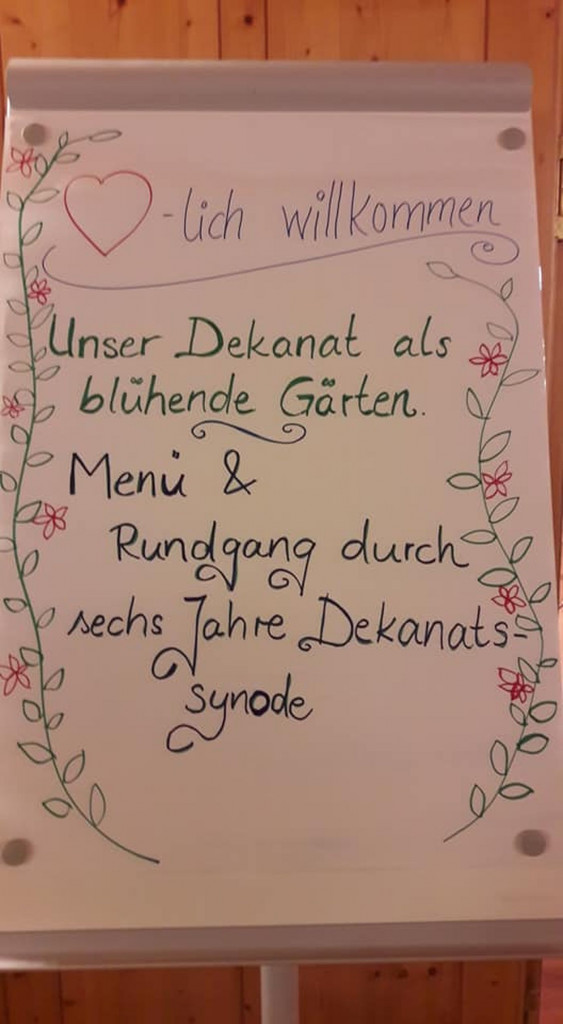 ♡-lich willkommen
Unser Dekanat als
blühende Gärten.
Menü &
Rundgang durch
sechs Jahre Dekanats-
synode